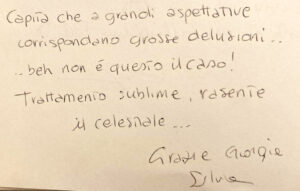 Capita che a grandi aspettative
corrispondano grosse delusioni..
..beh non è questo il caso!
Trattamento sublime, rasente
il celestiale...
Grazie Giorgia
Silvia